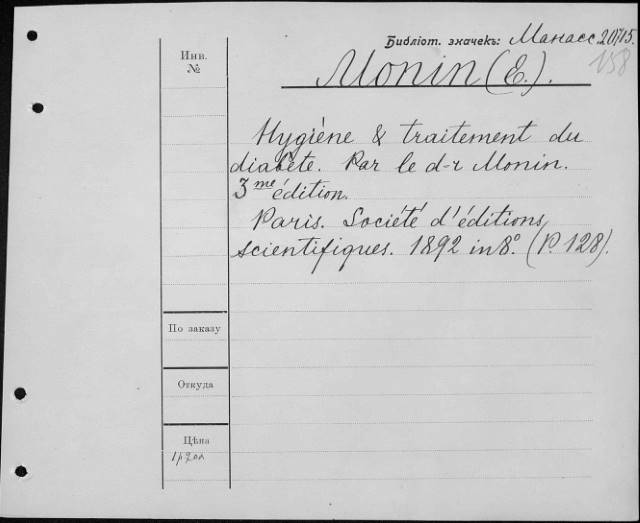 Библіот. значекъ: Манасс 20715.
158
Инв.
№
Monin (E.).
Hygiène & traitement du
diabète. Par le d-r Monin.
3me édition.
Paris. Société d'éditions
scientifiques. 1892 in 8°. (P. 128).
По заказу
Откуда
Цѣна